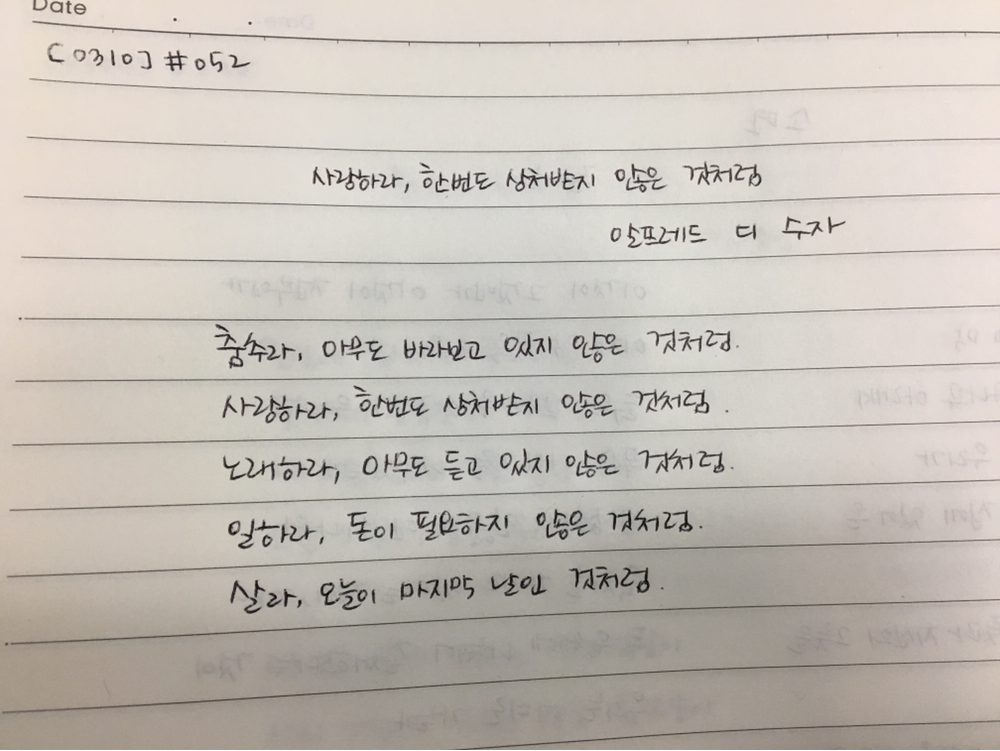 Date
[0310] #052
사랑하라, 한번도 상처받지 않은 것처럼
알프레드 디 수자
춤추라, 아무도 바라보고 있지 않은 것처럼.
사랑하라, 한번도 상처받지 않은 것처럼.
노래하라, 아무도 듣고 있지 않은 것처럼.
일하라, 돈이 필요하지 않은 것처럼.
살라, 오늘이 마지막 날인 것처럼.